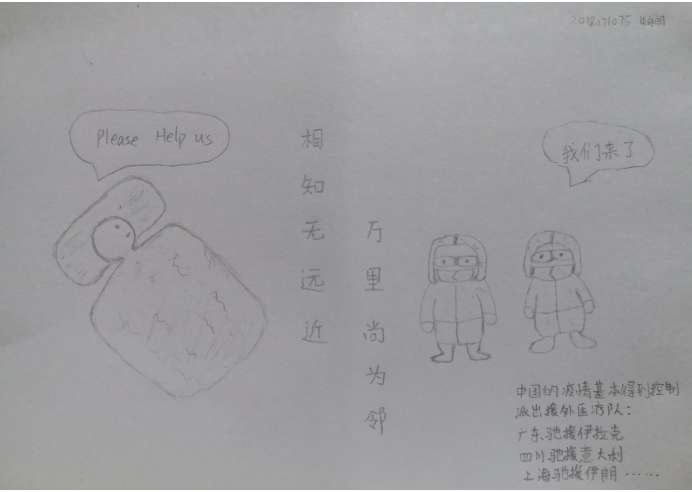 Please Help us
相知无远近
万里尚为邻
我们来了
中国的疫情基本得到控制
派出援外医疗队：
广东驰援伊拉克
四川驰援意大利
上海驰援伊朗……